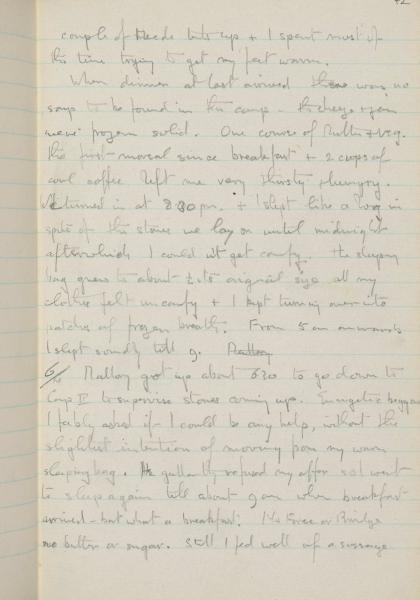 couple of Meade tents up + I spent most of
this time trying to get my feet warm.
When dinner at last arrived there was no
soup to be found in the camp - the cheese + jam
were frozen solid. One course of Mutton + veg.
the first morsel since breakfast + 2 cups of
cool coffee left me very thirsty + hungry.
We turned in at 8 30 pm. + I slept like a log in
spite of the stones we lay on until midnight
after which I could n't get comfy. The sleeping
bag grew to about ½ its original size all my
clothes felt uncomfy + I kept turning over into
patches of frozen breath. From 5 am onwards
I slept soundly till 9. Mallory
6/ Mallory got up about 6 30 to go down to
Camp II to supervise stores coming up. Energetic beggar
I feebly asked if I could be any help, without the
slightest intention of moving from my warm
sleeping bag. He gallantly refused my offer so I went
to sleep again till about 9 am when breakfast
arrived - but what a breakfast! No Force or Porridge
no butter or sugar. Still I fed well off a sausage